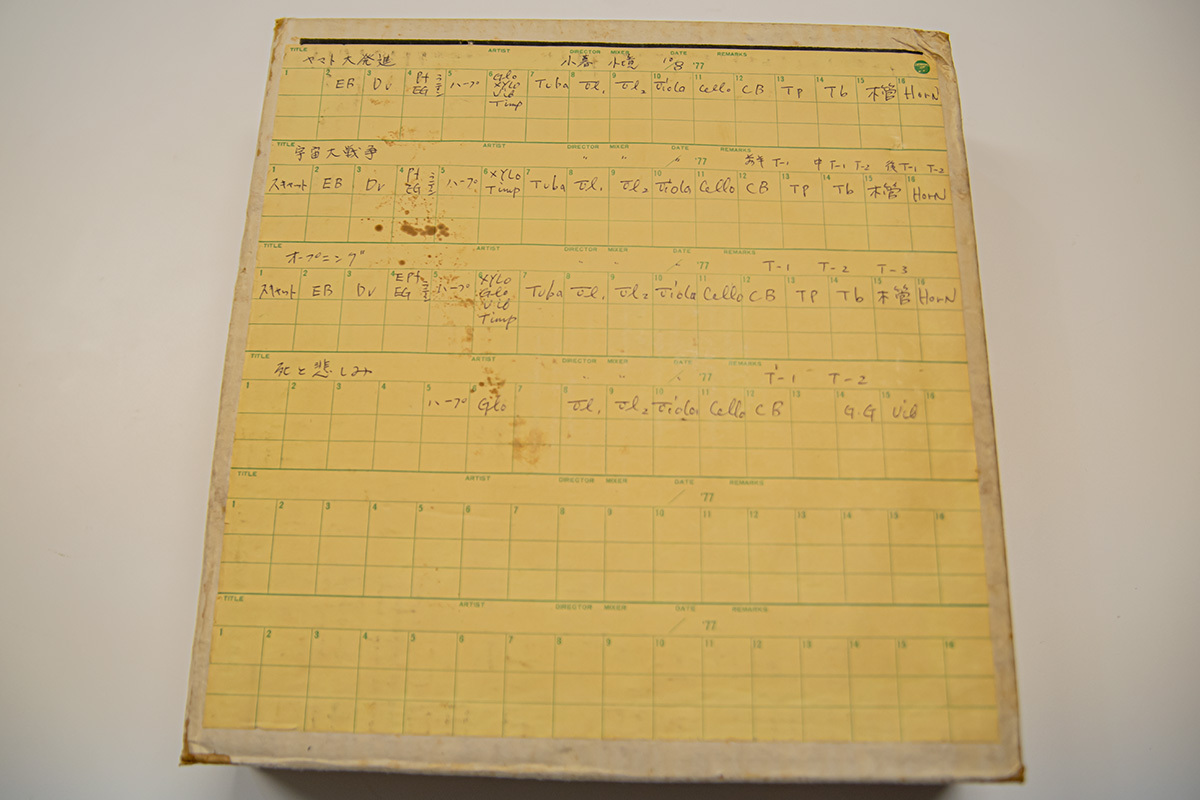 TITLE ARTIST DIRECTOR MIXER DATE REMARKS
ヤマト大発進 10/8 '77
1 2 3 4 5 6 7 8 9 10 11 12 13 14 15 16
EB Dr Pf EG ハープ Glo XYLO Vib Timp Tuba Vl.1 Vl.2 Viola Cello CB TP Tb 木管 HorN
TITLE ARTIST DIRECTOR MIXER DATE REMARKS
宇宙大戦争 〃 〃 〃 '77 T-1 中 T-1 T-2 後 T-1 T-2
1 2 3 4 5 6 7 8 9 10 11 12 13 14 15 16
スキャット EB Dr Pf EG ハープ XYLO Timp Tuba Vl.1 Vl.2 Viola Cello CB TP Tb 木管 HorN
TITLE ARTIST DIRECTOR MIXER DATE REMARKS
オープニング 〃 〃 〃 '77 T-1 T-2 T-3
1 2 3 4 5 6 7 8 9 10 11 12 13 14 15 16
スキャット EB Dr EPf EG ハープ XYLO Glo Vib Timp Tuba Vl.1 Vl.2 Viola Cello CB TP Tb 木管 HorN
TITLE ARTIST DIRECTOR MIXER DATE REMARKS
死と悲しみ 〃 〃 〃 '77 T-1 T-2
1 2 3 4 5 6 7 8 9 10 11 12 13 14 15 16
ハープ Glo Vl.1 Vl.2 Viola Cello CB G.G Vib
TITLE ARTIST DIRECTOR MIXER DATE REMARKS
/ '77
1 2 3 4 5 6 7 8 9 10 11 12 13 14 15 16
TITLE ARTIST DIRECTOR MIXER DATE REMARKS
/ '77
1 2 3 4 5 6 7 8 9 10 11 12 13 14 15 16